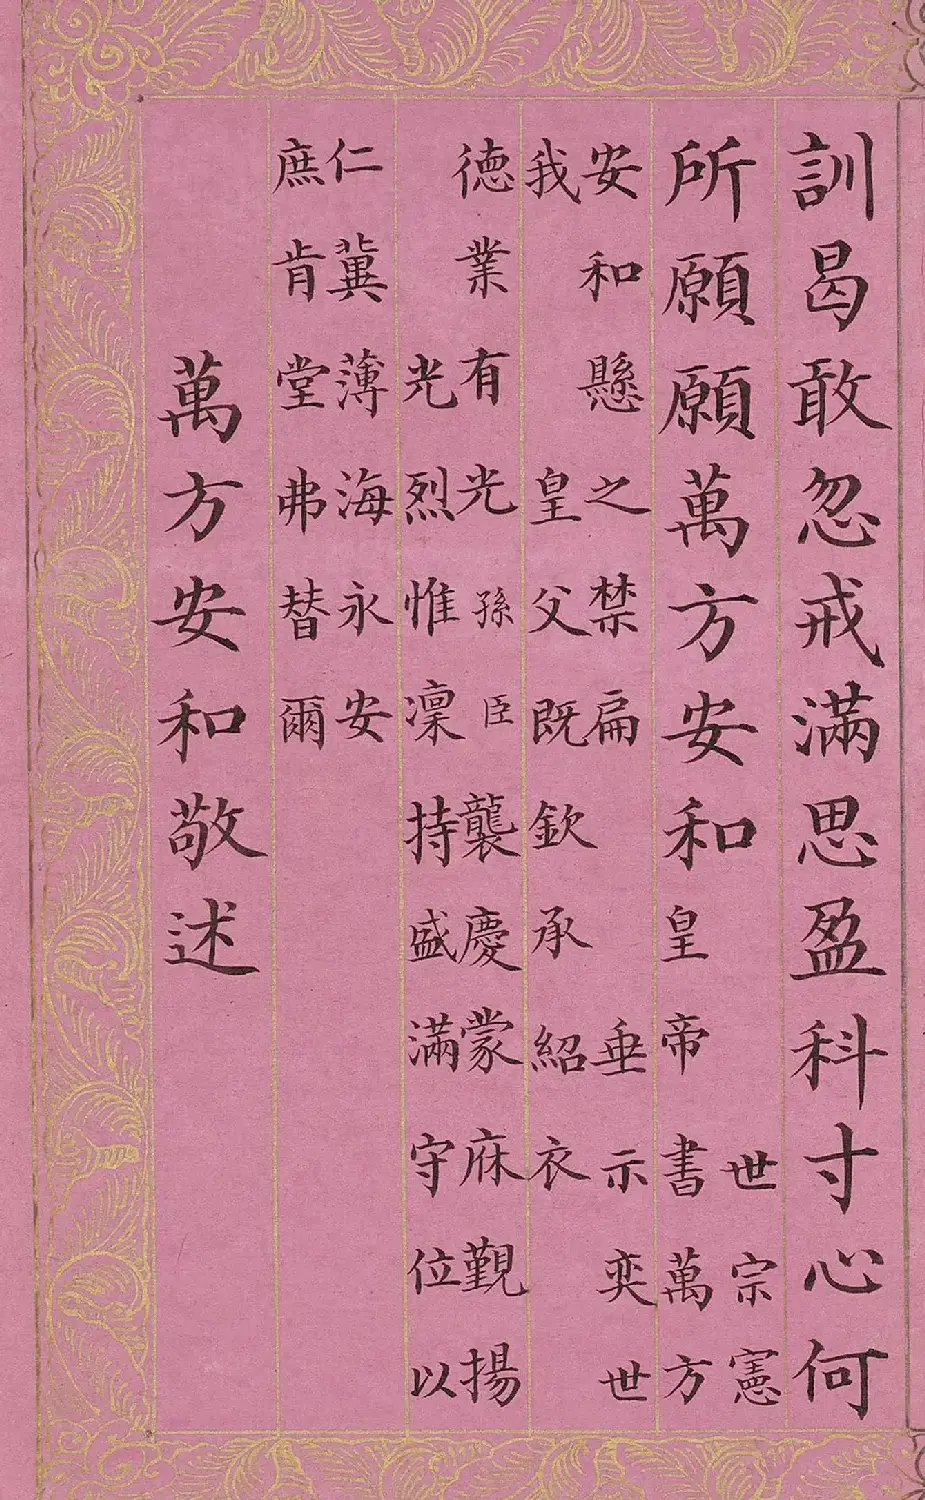 訓曷敢忽戒滿思盈科寸心何
所願願萬方安和
世宗憲
皇帝書萬方
安和懸之禁扁垂示奕世
我皇父既欽承紹衣
德業有光孫臣襲慶蒙庥覲揚
光烈惟凜持盛滿守位以
仁冀薄海永安
庶肯堂弗替爾
萬方安和敬述